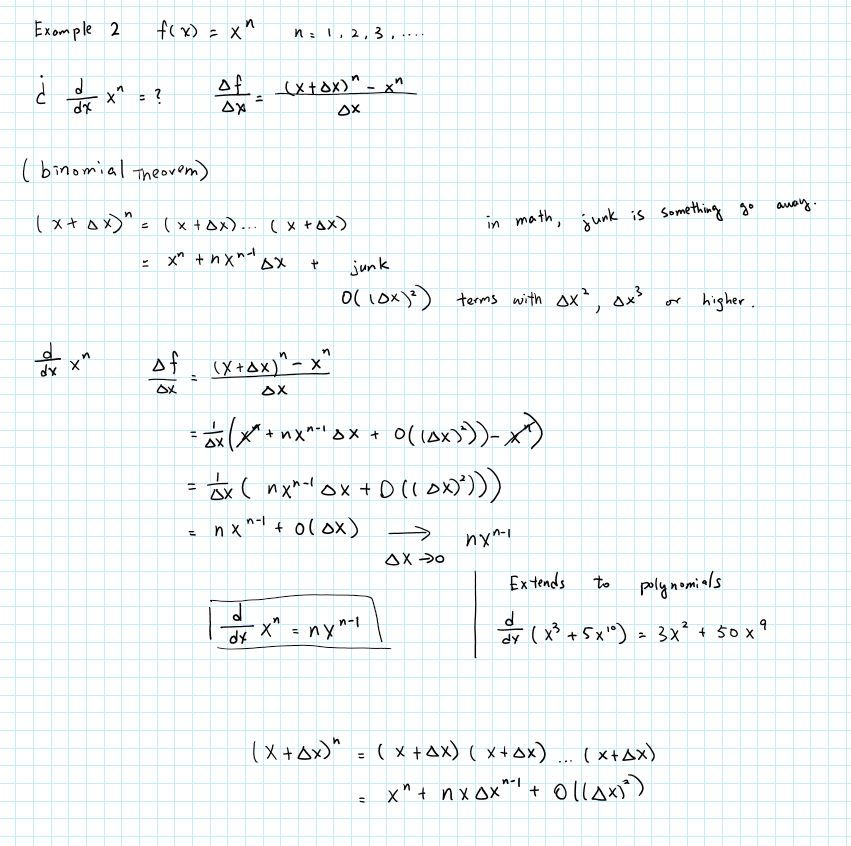 Example 2 f(x) = xⁿ n = 1, 2, 3, ....
¿ d/dx xⁿ = ? Δf/Δx = ((x+Δx)ⁿ - xⁿ)/Δx
(binomial Theorem)
(x+Δx)ⁿ = (x+Δx)... (x+Δx) in math, junk is something go away.
= xⁿ + nxⁿ⁻¹Δx + junk
O((Δx)²) terms with Δx², Δx³ or higher.
d/dx xⁿ Δf/Δx = ((x+Δx)ⁿ - xⁿ)/Δx
= 1/Δx (xⁿ + nxⁿ⁻¹Δx + O((Δx)²)) - xⁿ)
= 1/Δx ( nxⁿ⁻¹Δx + O((Δx)²)))
= nxⁿ⁻¹ + O(Δx) → nxⁿ⁻¹
Δx→0
Extends to polynomials
d/dx xⁿ = nxⁿ⁻¹ d/dx (x³ + 5x¹⁰) = 3x² + 50x⁹
(x+Δx)ⁿ = (x+Δx)(x+Δx) ... (x+Δx)
= xⁿ + nxΔxⁿ⁻¹ + O((Δx)²)